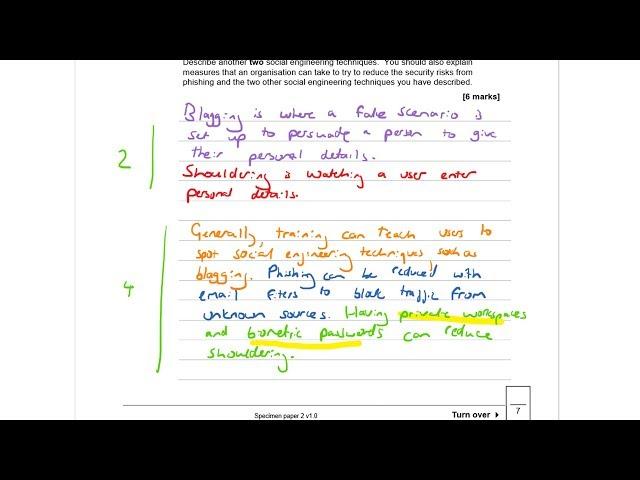 Describe another two social engineering techniques. You should also explain
measures that an organisation can take to try to reduce the security risks from
phishing and the two other social engineering techniques you have described.
[6 marks]
Blagging is where a fake scenario is
set up to persuade a person to give
their personal details.
2
Shouldering is watching a user enter
personal details.
Generally, training can teach users to
spot social engineering techniques, such as
blagging. Phishing can be reduced with
4
email filters to block traffic from
unknown sources. Having private workspaces
and biometric passwords can reduce
shouldering.
Specimen paper 2 v1.0
Turn over
7